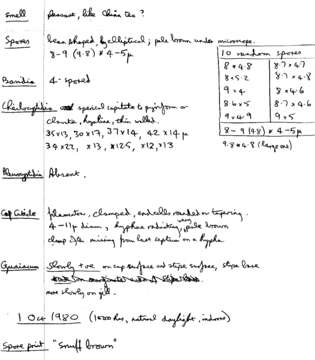 Smell pleasant, like China tea?
Spores bean shaped, elliptical; pale brown under microscope.
8-9 (9.8) × 4-5µ
10 random spores
8 × 4.8 8.7 × 4.7
8 × 5.2 8.7 × 4.8
9 × 4 8 × 4.6
8.6 × 5 8.7 × 4.6
9 × 4.9 9 × 5
8-9 (9.8) × 4-5µ
9.8 × 4.8 (large one)
Basidia 4-spored
Cheilocystidia capitate to pyriform or
clavate, hyaline, thin walled.
35×13, 30×17, 37×14, 42×14µ
34×22, ×13, ×12.5, ×12, ×13
Pleurocystidia Absent.
Cap Cuticle filamentous, clamped, end cells rounded or tapering.
4-11µ diam, hyphae radiating, very pale brown
clamp often missing from last septum on a hypha
Guaiacum Slowly +ve on cap surface and stipe surface, stipe base
more slowly on gill.
1 Oct 1980 (1500 hrs, natural daylight, indoors)
Spore print "Snuff brown"